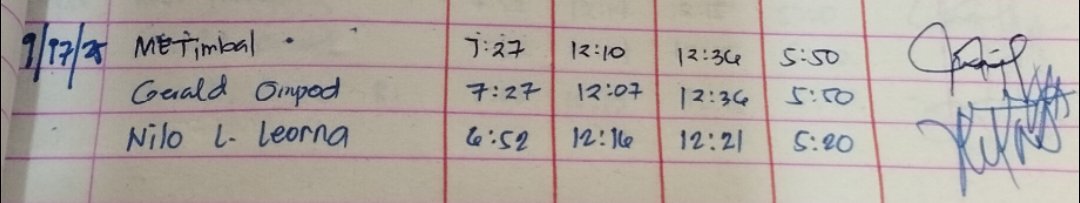 9/17/25 METimbal . 7:27 12:10 12:36 5:50
Gerald Ompod 7:27 12:07 12:36 5:50
Nilo L. Leorna 6:52 12:16 12:21 5:20